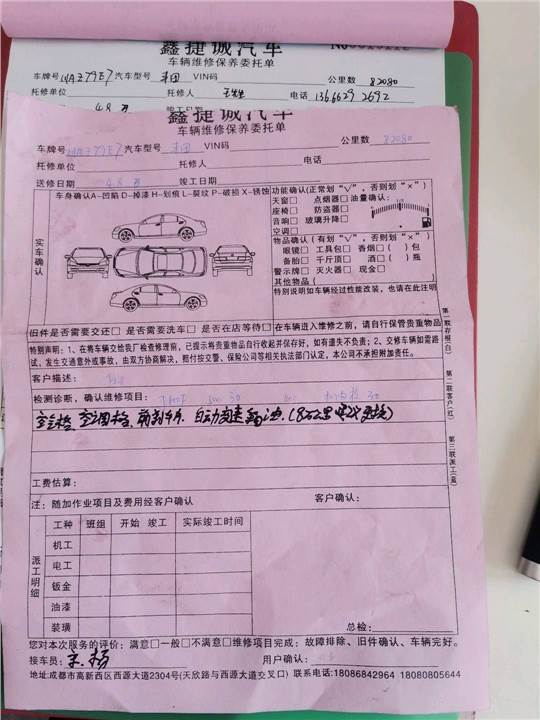 鑫捷诚汽车
车辆维修保养委托单
车牌号 汽车型号 丰田 VIN码 公里数 82080
托修单位 托修人 王先生 电话
鑫捷诚汽车
车辆维修保养委托单
车牌号 汽车型号 丰田 VIN码 公里数 82080
托修单位 托修人 电话
送修日期 4.8 竣工日期
实车确认
车身确认A-凹陷 D-掉漆 H-划痕 L-裂纹 P-破损 X-锈蚀
功能确认(正常划“√”,否则划“×”)
天窗□ 点烟器□ 油量确认:
座椅□ 防盗器□
音响□ 玻璃升降□
空调□
物品确认(有划“√”,否则划“×”)
眼镜□ 工具包□ 香烟( )包
备胎□ 千斤顶□ 酒( )瓶
警示牌□ 灭火器□ 现金□
其他物品( )
特别说明如车辆经过性能改装,也请在此注明
旧件是否需要交还□ 是否需要洗车□ 是否在店等待□ 在车辆进入维修之前,请自行保管贵重物品
特别声明:1、在将车辆交给我厂检查修理前,已提示将贵重物品自行收起并保存好,如有遗失不负责;2、交修车辆如需路
试,发生交通意外或事故,由双方协商解决,赔付按交警、保险公司等相关执法部门认定,本公司不承担附加责任。
客户描述:
检测诊断,确认维修项目:
空气格 空调格
工费估算:
注:随加作业项目及费用经客户确认 客户确认:
派工明细
工种 班组 开始 竣工 实际竣工时间
机工
电工
钣金
油漆
装璜
总检:
您对本次服务的评价:满意□一般□不满意□维修项目完成:故障排除、旧件确认、车辆完好。
接车员: 用户确认:
地址:成都市高新西区西源大道2304号(天欣路与西源大道交叉口) 联系电话:18086842964 18080805644
第一联存根(白)
第二联客户(红)
第三联派工(蓝)